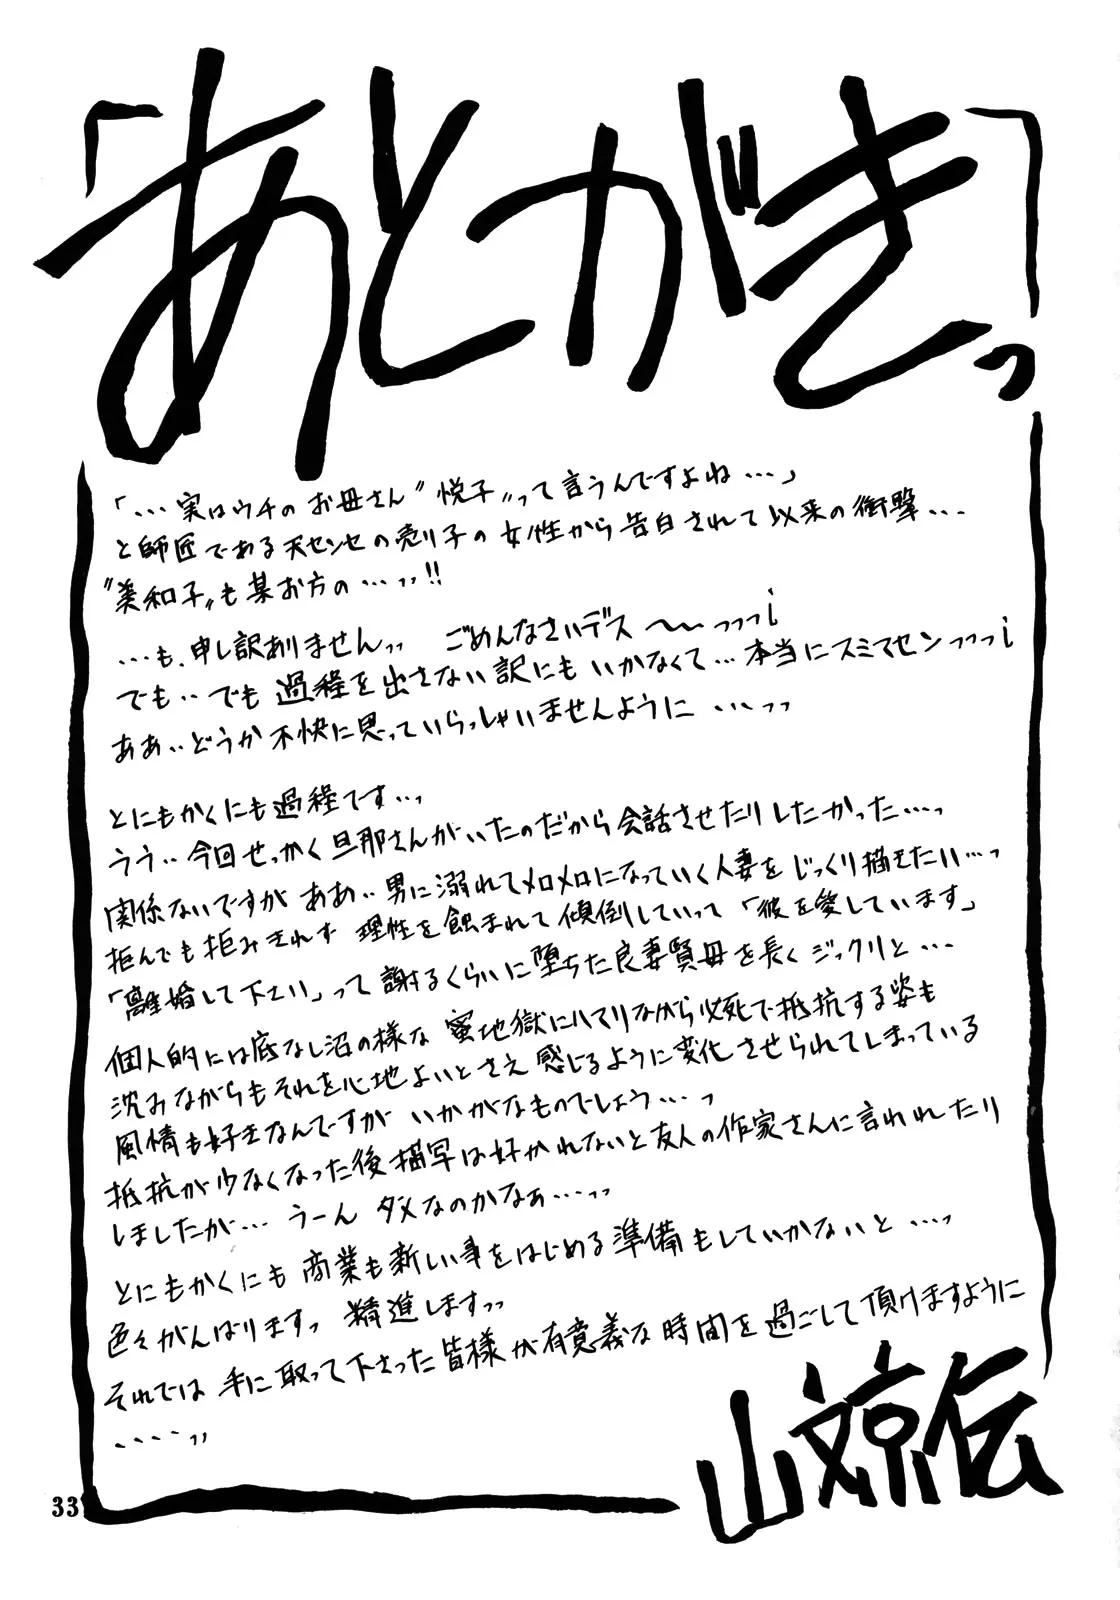 「あとがきっ」
「…実はウチのお母さん"悦子"って言うんですよね…」
と師匠である天センセの売り子の女性から告白されて以来の衝撃…
"美和子"も某お方の…ッッ!!
…も、申し訳ありませんッッ ごめんなさいデス〜〜っっっ¡
でも‥でも過程を出さない訳にもいかなくて…本当にスミマセンっっっ¡
ああ‥どうか不快に思っていらっしゃいませんように…っッ
とにもかくにも過程です…っ
うう‥今回せっかく旦那さんがいたのだから会話させたりしたかった…っ
関係ないですがああ‥男に溺れてメロメロになっていく人妻をじっくり描きたい…っ
拒んでも拒みきれず理性を蝕まれて傾倒していって「彼を愛しています」
「離婚して下さい」って謝るくらいに堕ちた良妻賢母を長くジックリと…
個人的には底なし沼の様な蜜地獄にハマりながら必死で抵抗する姿も
沈みながらもそれを心地よいとさえ感じるように変化させられてしまっている
風情も好きなんですがいかがなものでしょう…っ
抵抗が少なくなった後描写は好かれないと友人の作家さんに言われたり
しましたが…うーん ダメなのかなぁ…ッッ
とにもかくにも商業も新しい事をはじめる準備もしていかないと…っ
色々がんばりますっ 精進しますッッ
それでは手に取って下さった皆様が有意義な時間を過ごして頂けますように
‥‥‥ッッ
山文京伝
33